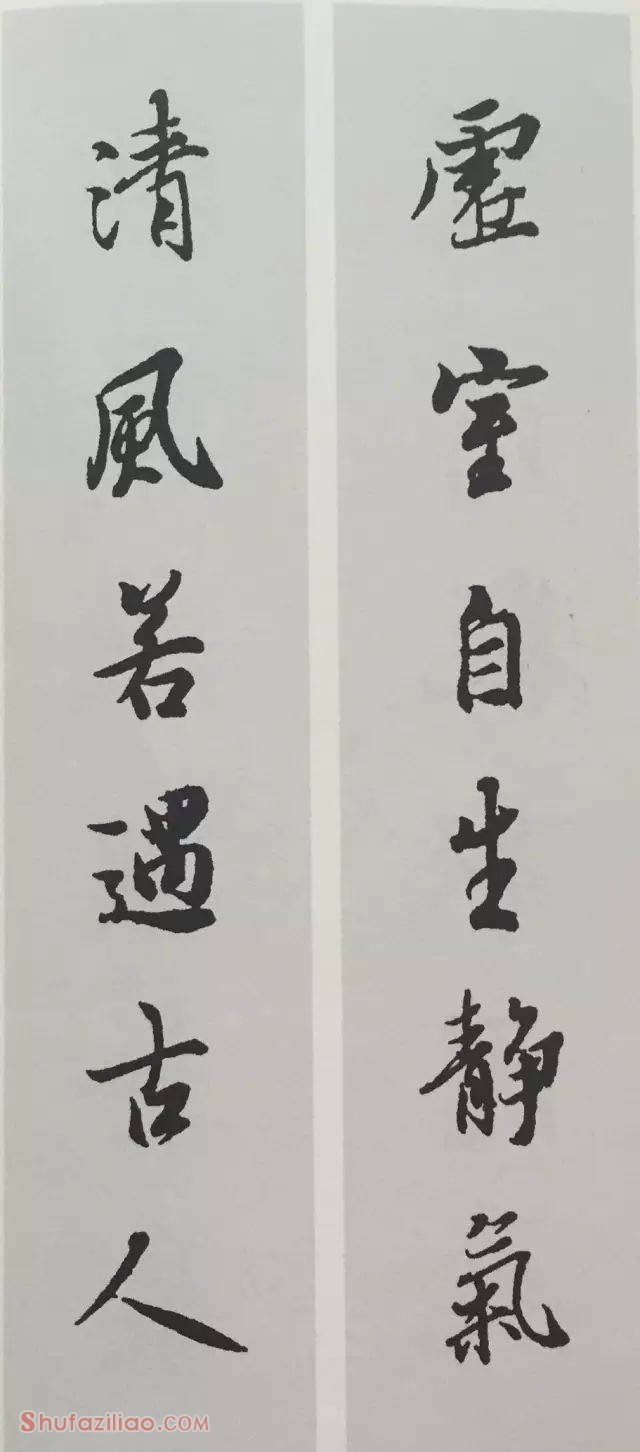 虛室自生靜氣
清風若遇古人
Shufaziliao.COM